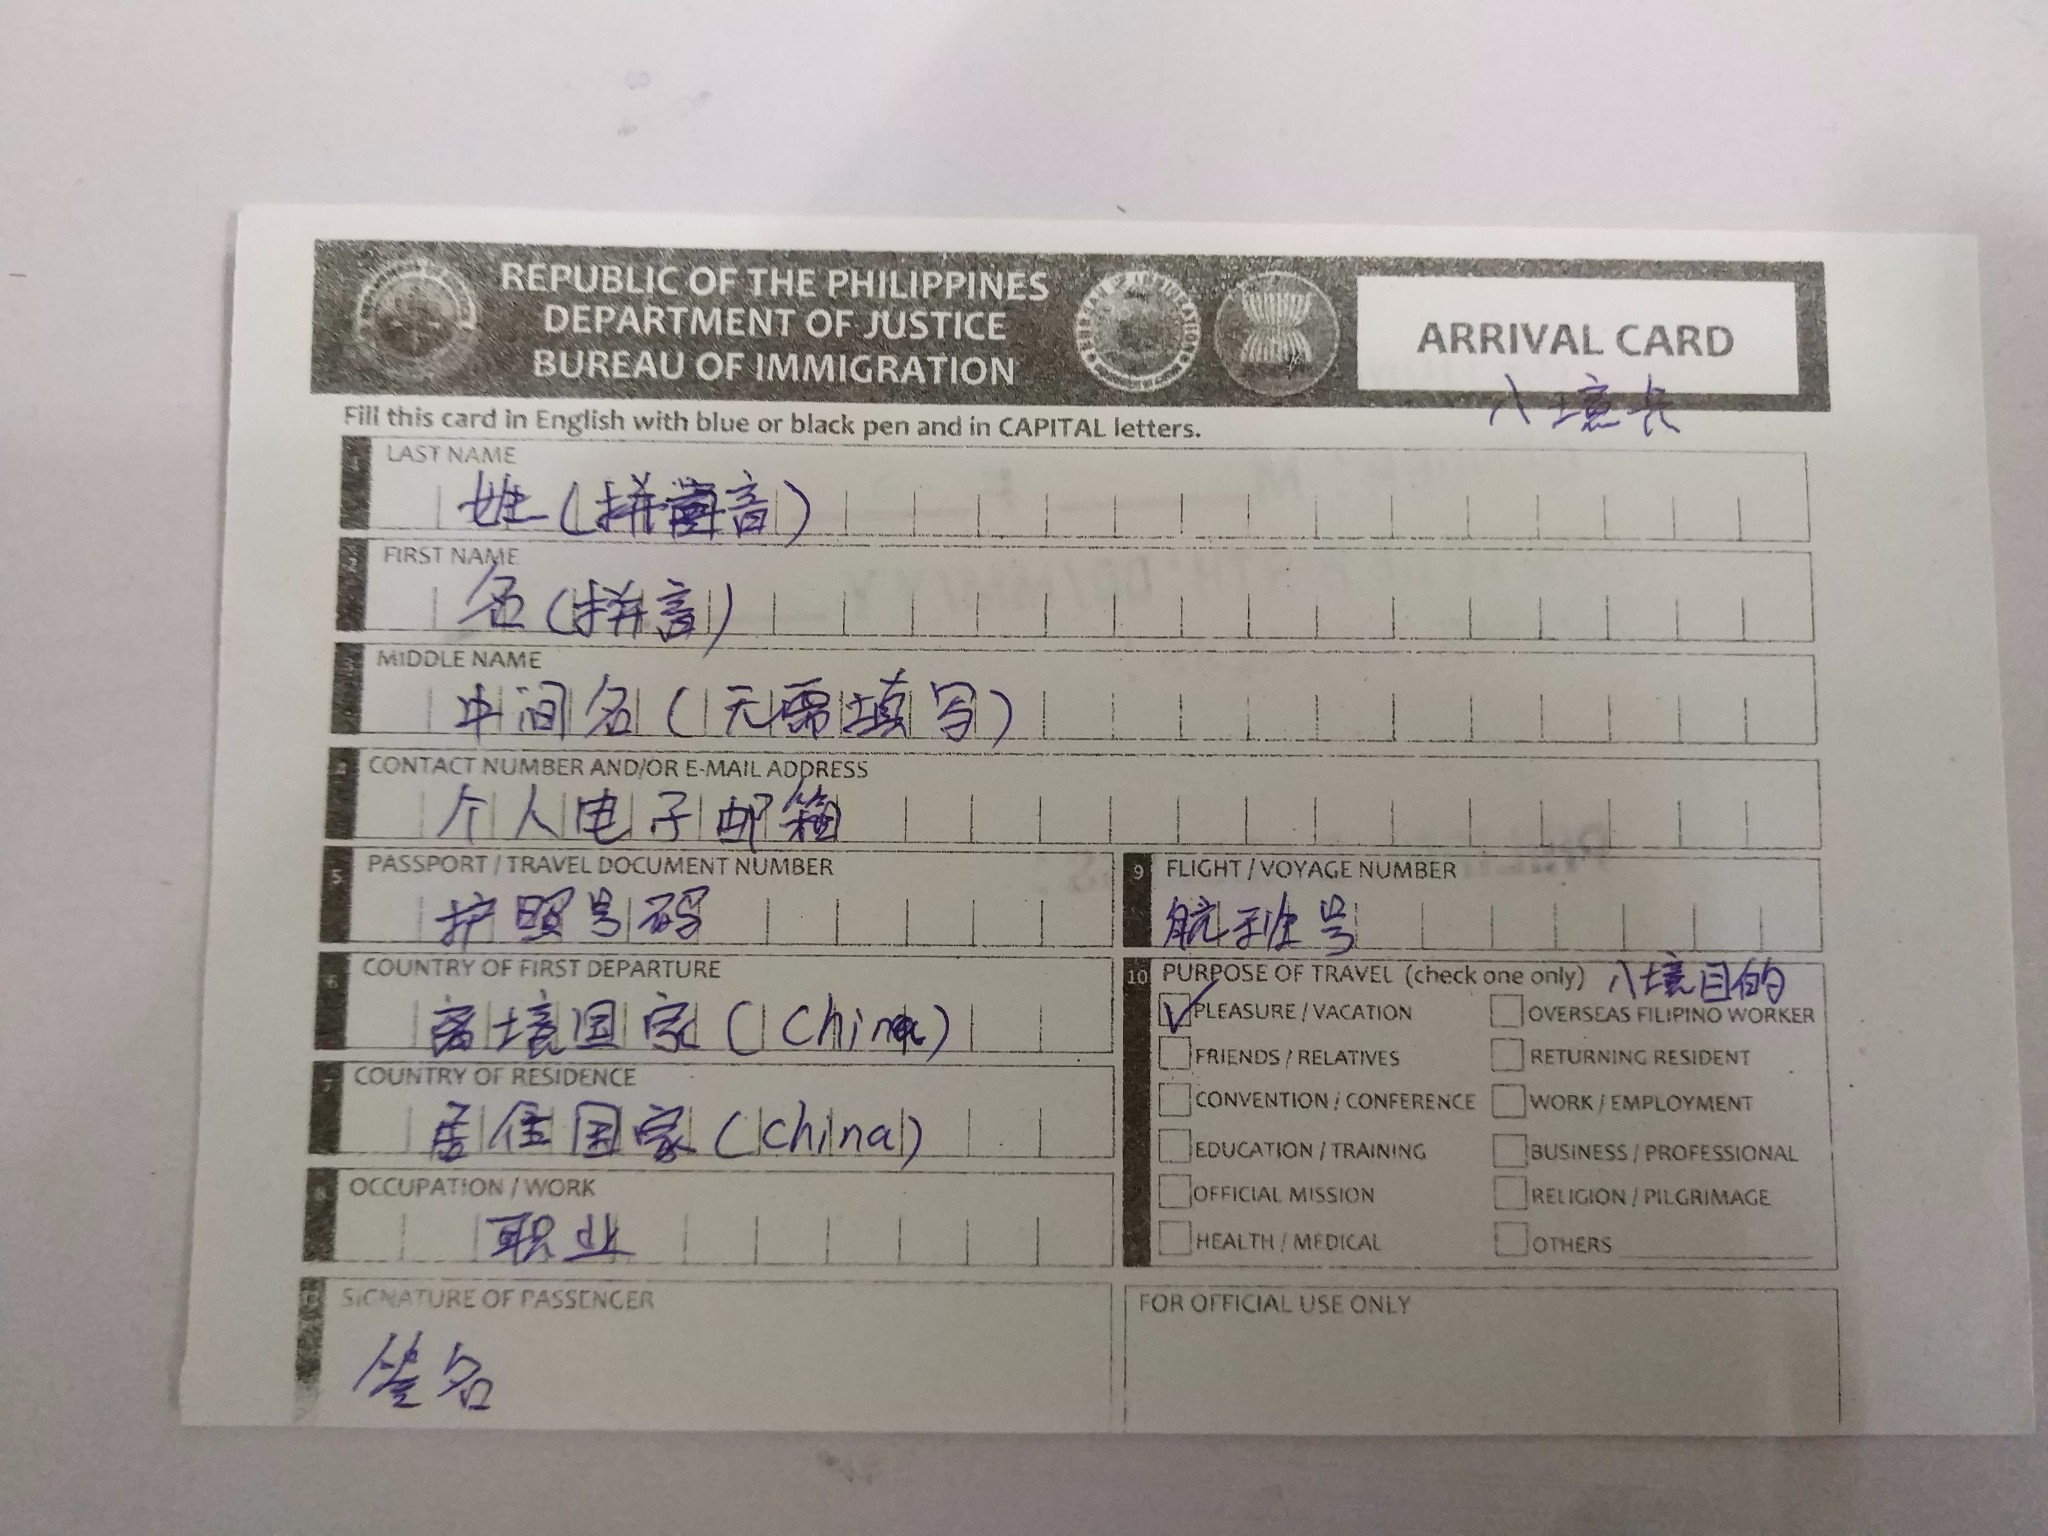 REPUBLIC OF THE PHILIPPINES
DEPARTMENT OF JUSTICE
BUREAU OF IMMIGRATION
ARRIVAL CARD
入境卡
Fill this card in English with blue or black pen and in CAPITAL letters.
1 LAST NAME
姓(拼音)
2 FIRST NAME
名(拼音)
3 MIDDLE NAME
中间名(无需填写)
4 CONTACT NUMBER AND/OR E-MAIL ADDRESS
个人电子邮箱
5 PASSPORT / TRAVEL DOCUMENT NUMBER
护照号码
6 COUNTRY OF FIRST DEPARTURE
离境国家(China)
7 COUNTRY OF RESIDENCE
居住国家(China)
8 OCCUPATION / WORK
职业
9 FLIGHT / VOYAGE NUMBER
航班号
10 PURPOSE OF TRAVEL (check one only) 入境目的
PLEASURE / VACATION
OVERSEAS FILIPINO WORKER
FRIENDS / RELATIVES
RETURNING RESIDENT
CONVENTION / CONFERENCE
WORK / EMPLOYMENT
EDUCATION / TRAINING
BUSINESS / PROFESSIONAL
OFFICIAL MISSION
RELIGION / PILGRIMAGE
HEALTH / MEDICAL
OTHERS
SIGNATURE OF PASSENGER
签名
FOR OFFICIAL USE ONLY